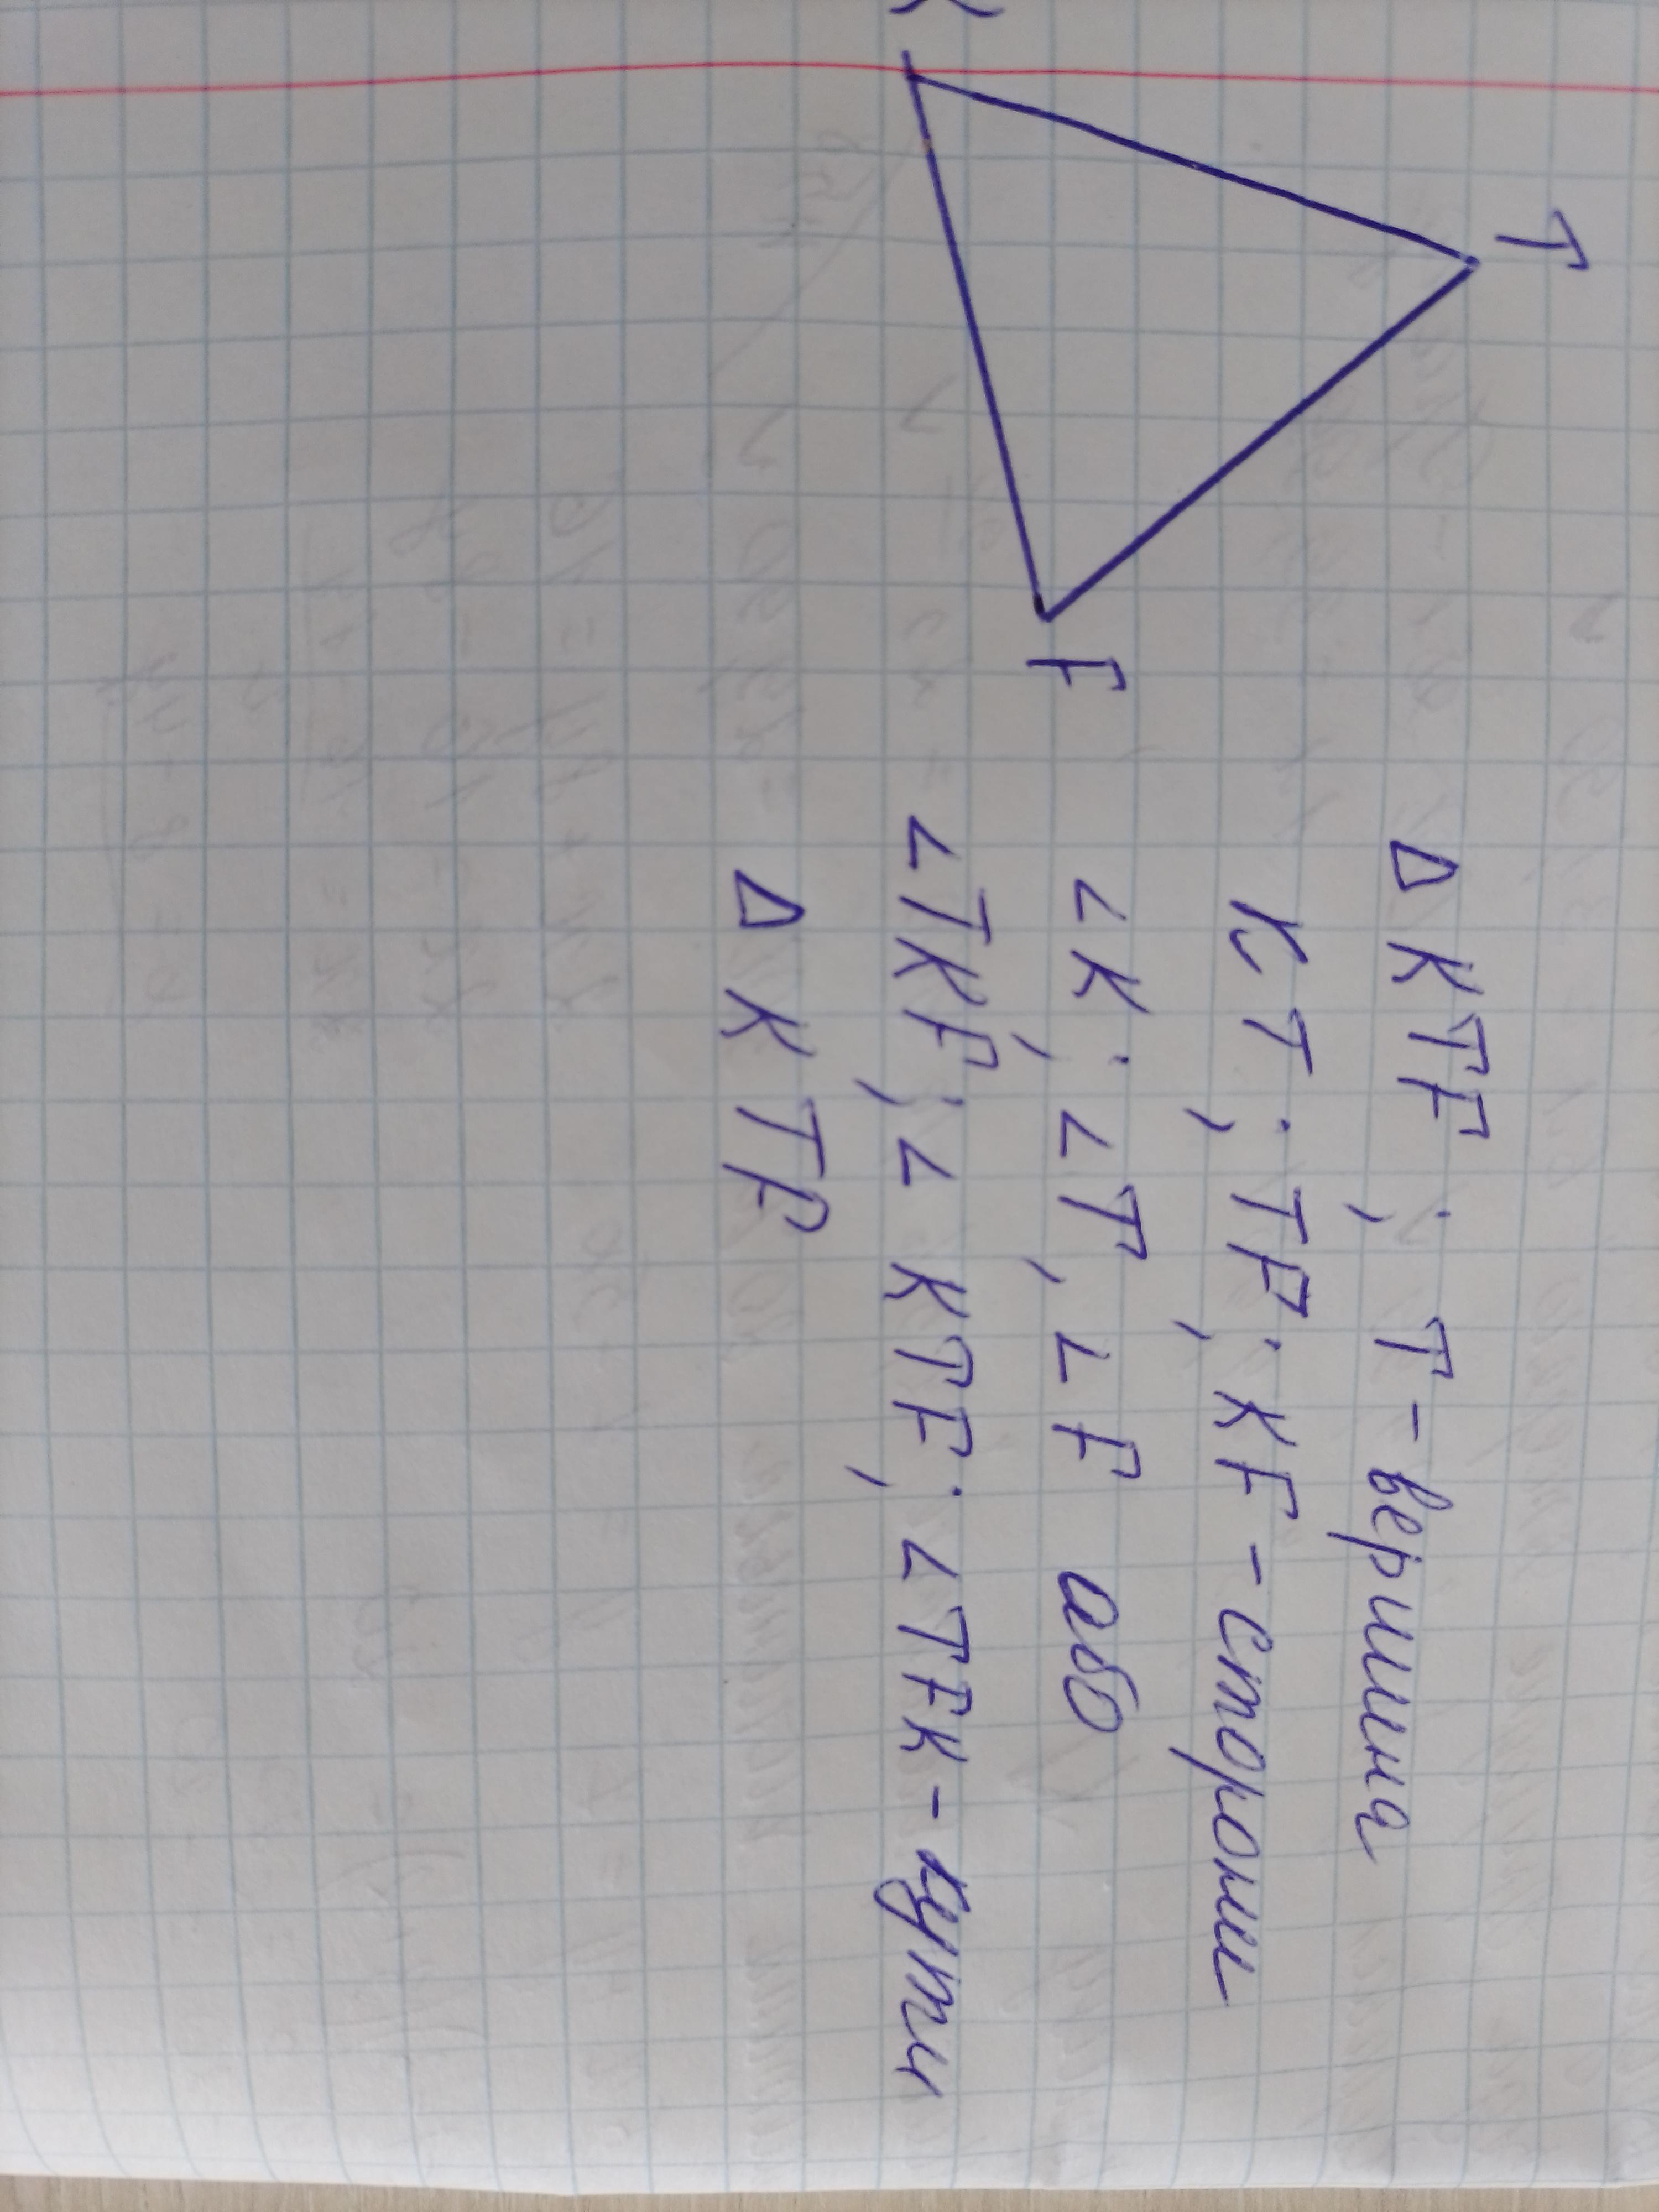 T
K
F
Δ KTF ; T - вершина
KT ; TF; KF - сторони
∠K; ∠T, ∠F або
∠TKF; ∠ KTF; ∠TFK - кути
Δ KTF